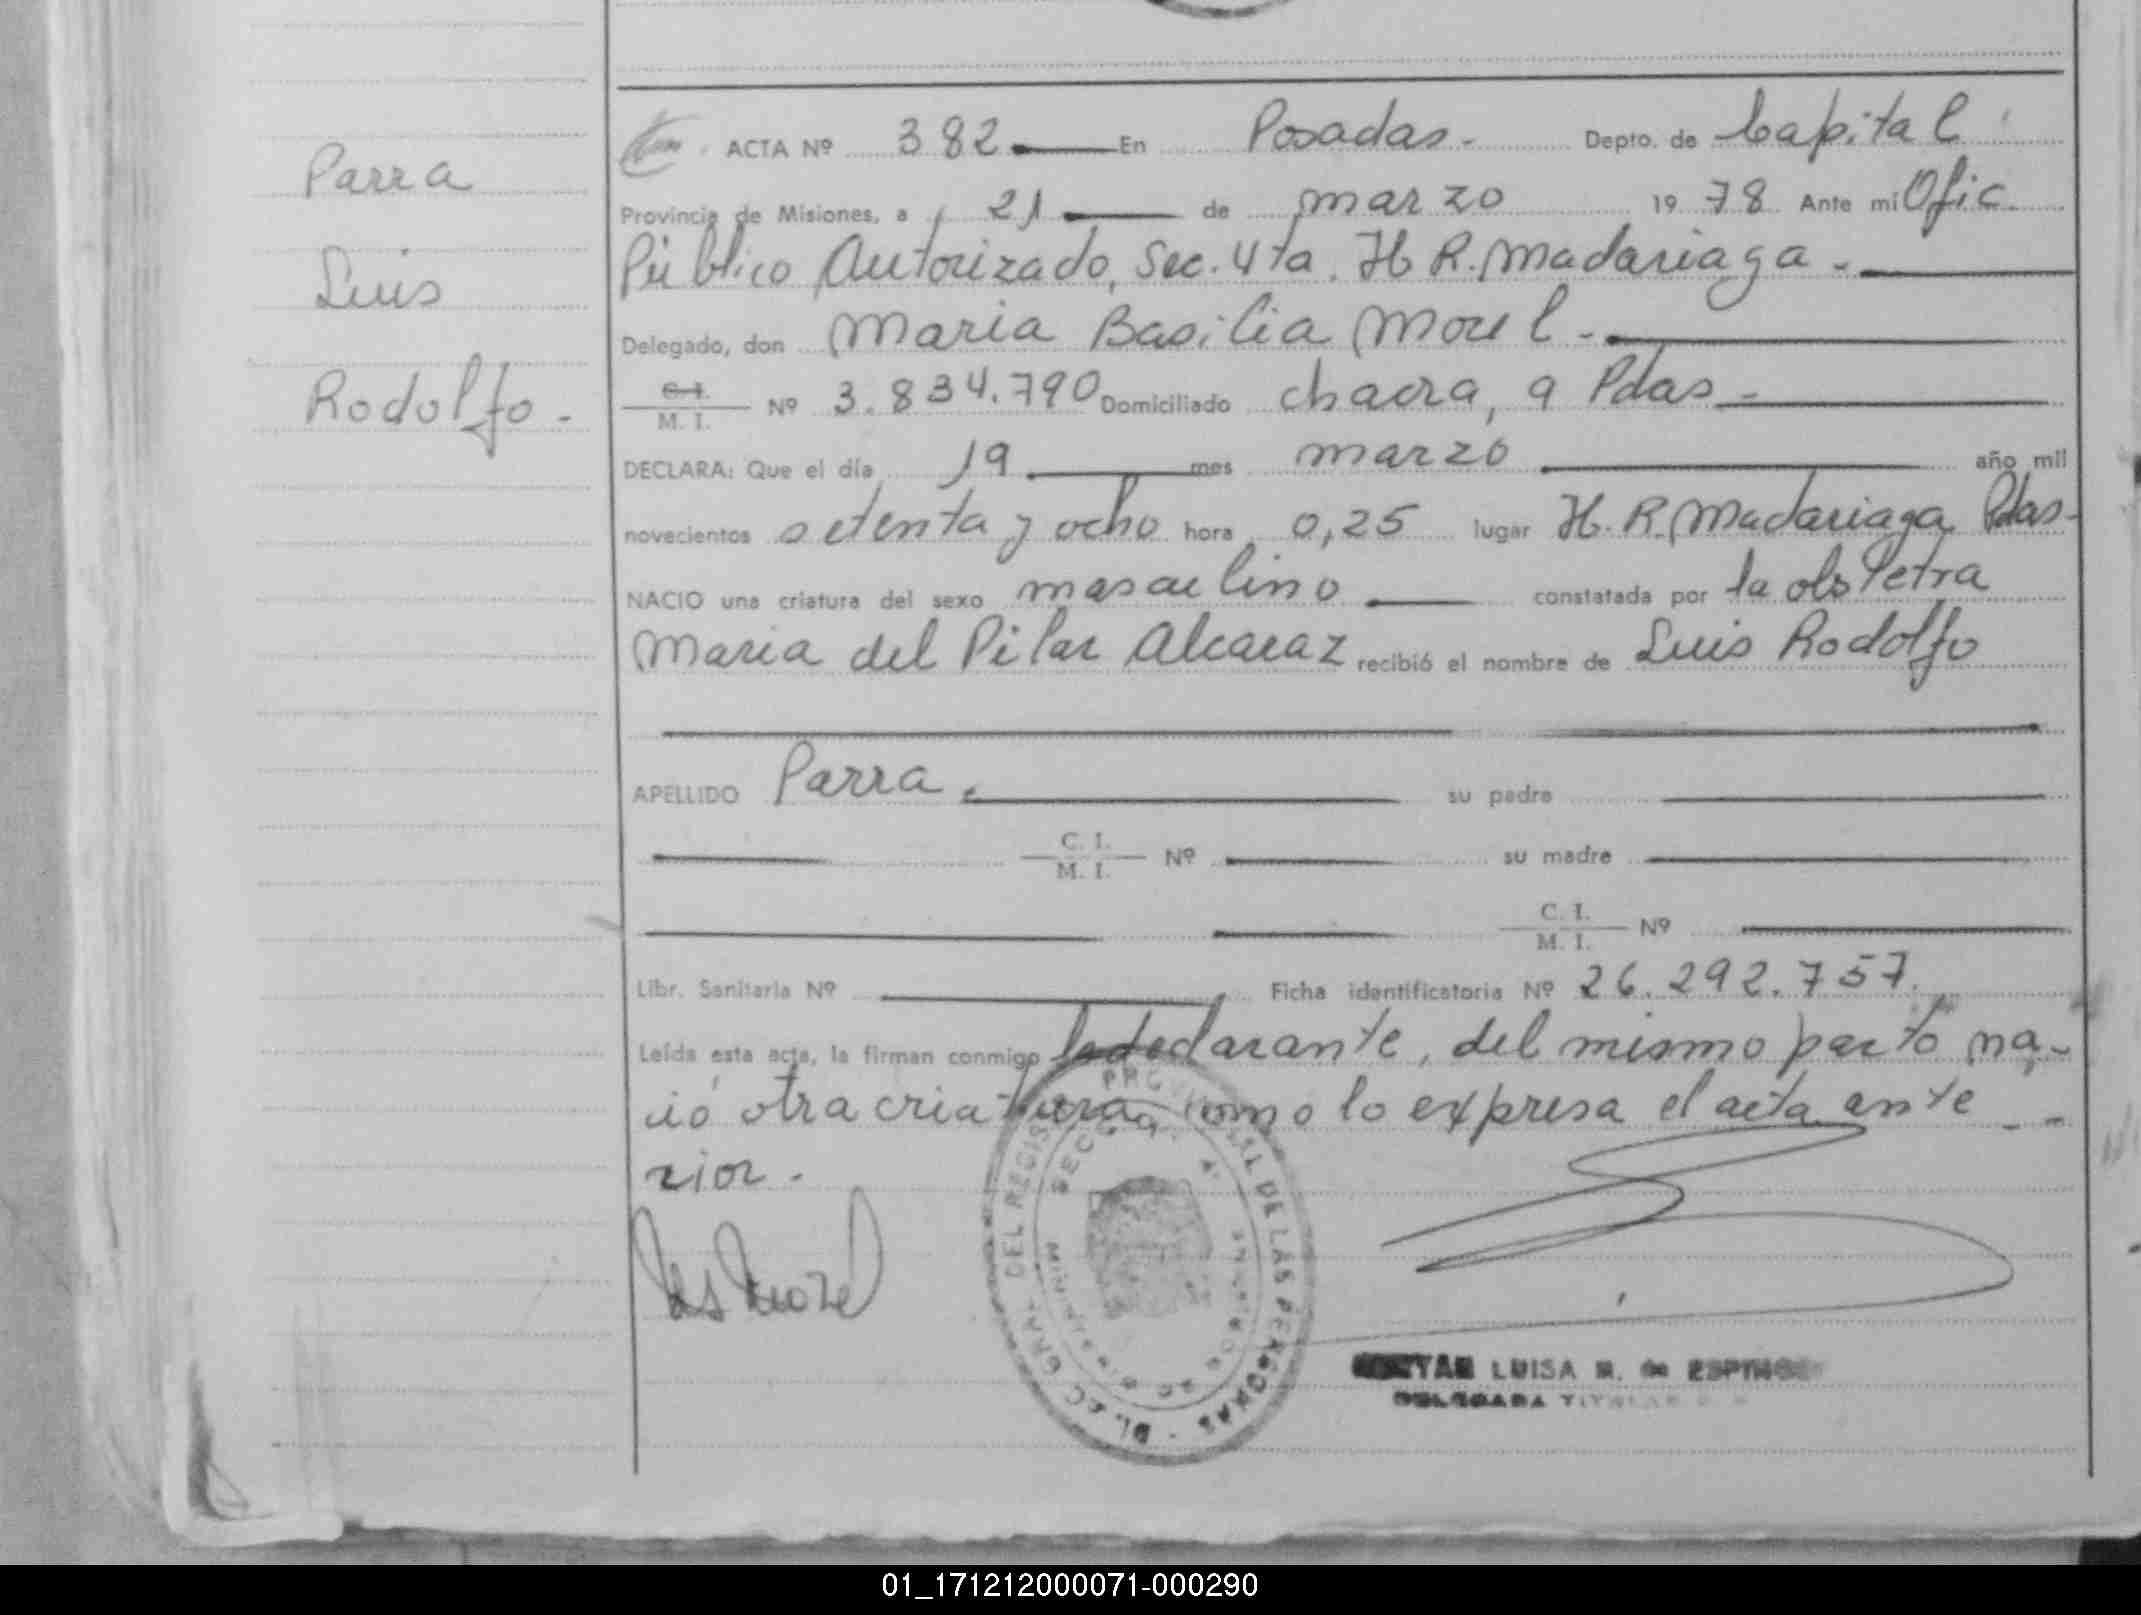 Parra
Luis
Rodolfo.-
ACTA Nº 382 En Posadas.- Depto. de Capital
Provincia de Misiones, a 21 de marzo 1978 Ante mi Ofic.
Público Autorizado, Sec. 4ta. H R. Madariaga.-
Delegado, don Maria Basilia Morel.-
C. I.
M. I. Nº 3.834.790 Domiciliado chacra, 9 Pdas.-
DECLARA: Que el día 19 mes marzo año mil
novecientos setenta y ocho hora 0,25 lugar H. R. Madariaga Pdas-
NACIO una criatura del sexo masculino constatada por la obstetra
Maria del Pilar Alcaraz recibió el nombre de Luis Rodolfo
APELLIDO Parra. su padre
C. I.
M. I. Nº su madre
C. I.
M. I. Nº
Libr. Sanitaria Nº Ficha identificatoria Nº 26.292.757.
Leída esta acta, la firman conmigo la declarante, del mismo parto na-
ció otra criatura, como lo expresa el acta ante
rior.-
LUISA M. de ESPINO
DELEGADA TITULAR
DEL REGIS PROVINCIAL DE LAS PERSONAS
01_171212000071-000290